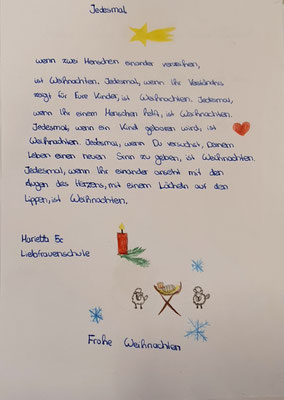 Jedesmal
wenn zwei Menschen einander verzeihen,
ist Weihnachten. Jedesmal, wenn Ihr Verständnis
zeigt für Eure Kinder, ist Weihnachten. Jedesmal,
wenn Ihr einem Menschen helft, ist Weihnachten.
Jedesmal, wenn ein Kind geboren wird, ist
Weihnachten. Jedesmal, wenn Du versuchst, Deinem
Leben einen neuen Sinn zu geben, ist Weihnachten.
Jedesmal, wenn Ihr einander anseht mit den
Augen des Herzens, mit einem Lächeln auf den
Lippen, ist Weihnachten.
Marietta 5c
Liebfrauenschule
Frohe Weihnachten